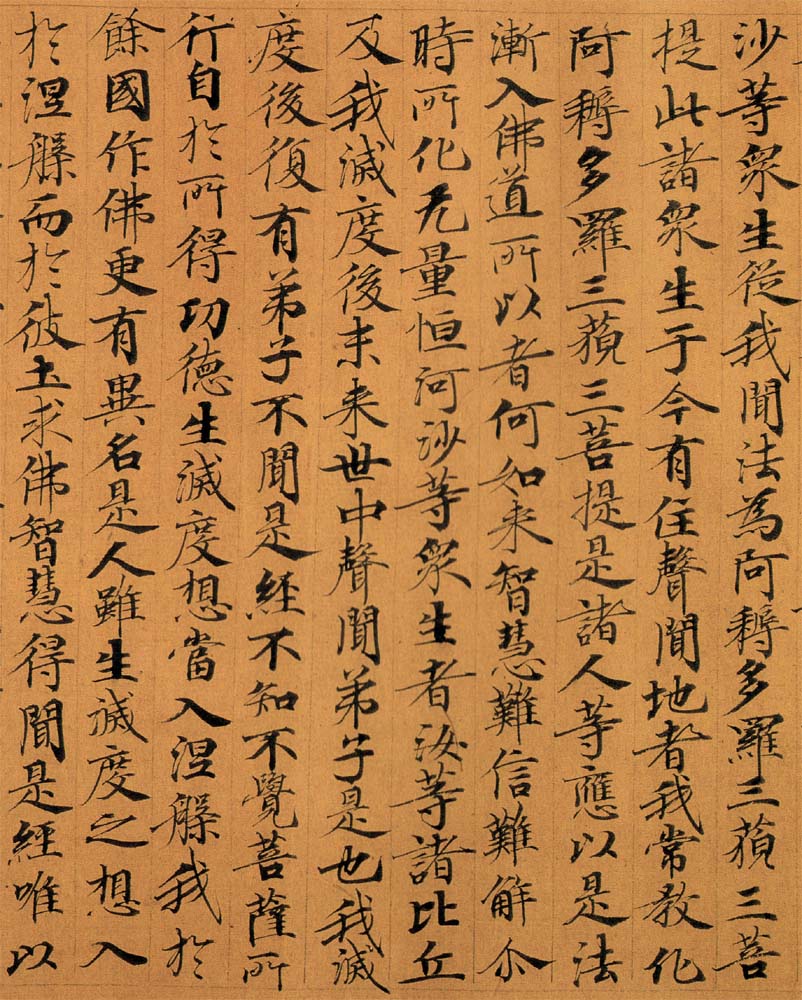 沙等眾生從我聞法為阿耨多羅三藐三菩
提此諸眾生于今有住聲聞地者我常教化
阿耨多羅三藐三菩提是諸人等應以是法
漸入佛道所以者何如来智慧難信難解尒
時所化无量恒河沙等眾生者汝等諸比丘
及我滅度後未来世中聲聞弟子是也我滅
度後復有弟子不聞是經不知不覺菩薩所
行自於所得功德生滅度想當入涅槃我於
餘國作佛更有異名是人雖生滅度之想入
於涅槃而於彼土求佛智慧得聞是經唯以